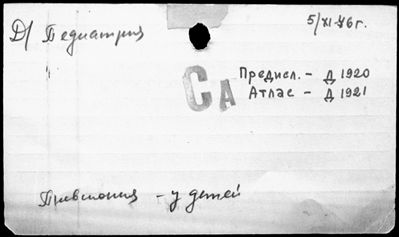 Д/ Педиатрия
5/XI-76г.
СА
Предисл. - Д 1920
Атлас - Д 1921
Пневмония - у детей